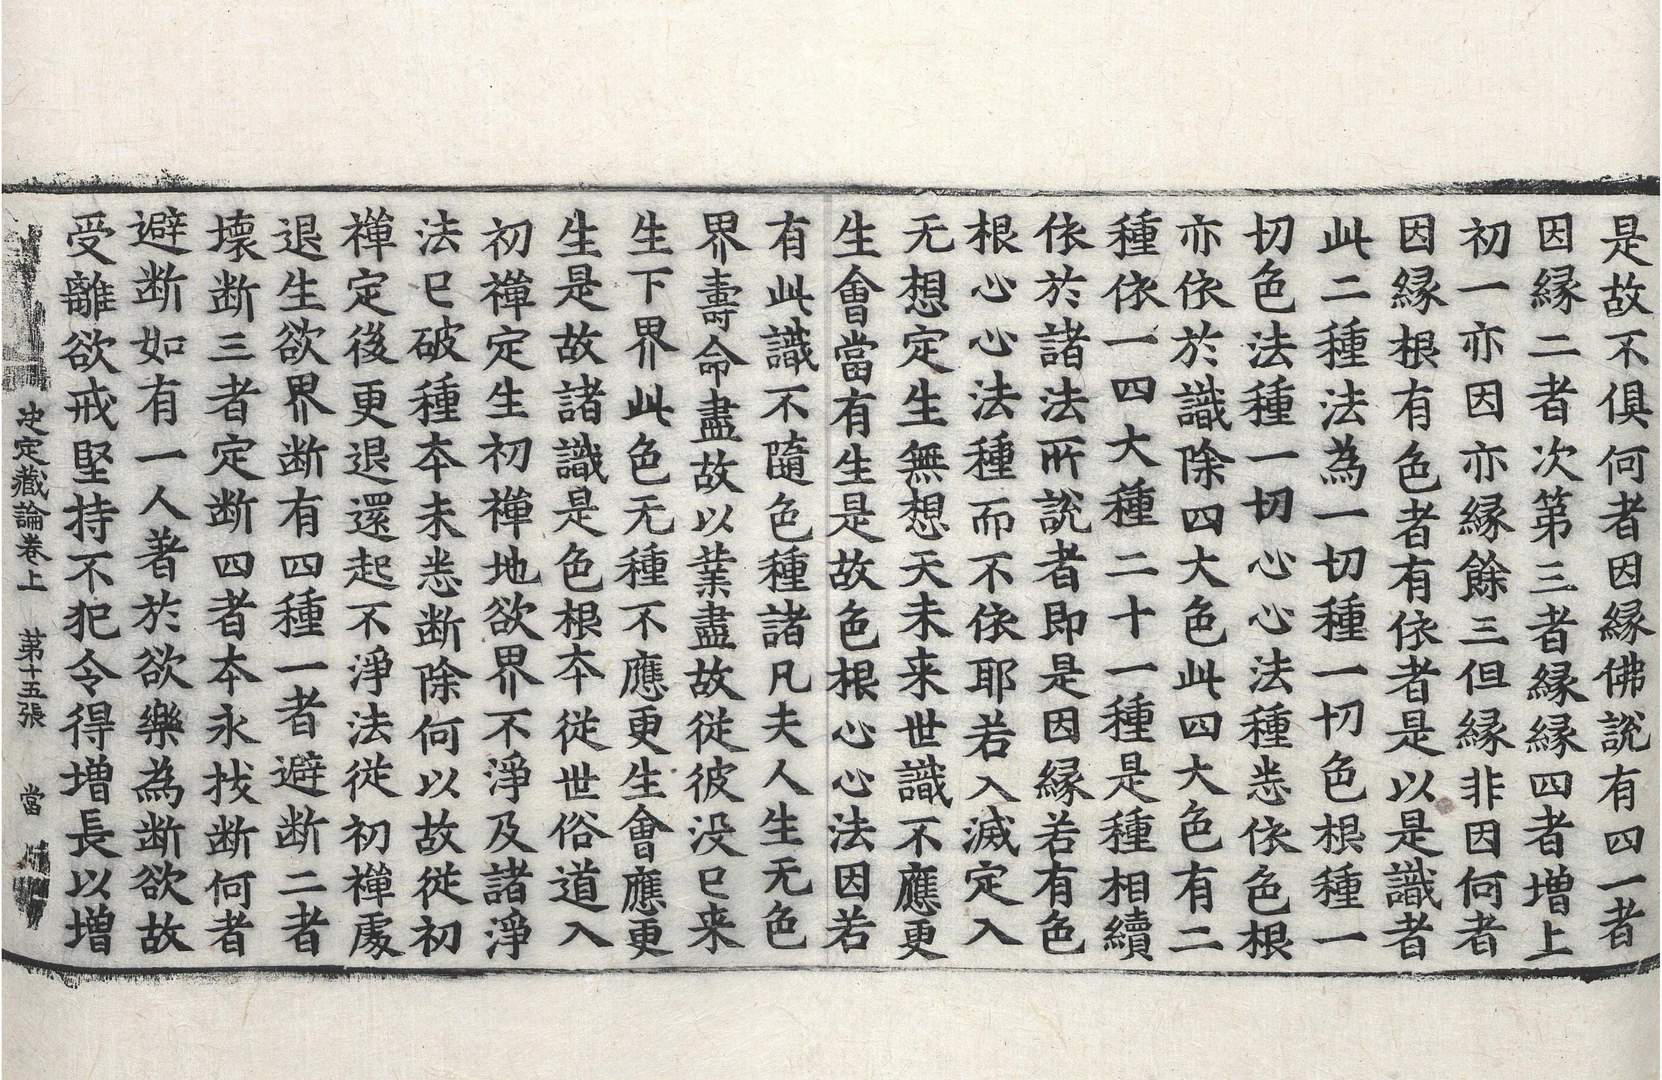 是故不俱何者因縁佛說有四一者
因縁二者次第三者縁縁四者增上
初一亦因亦縁餘三但縁非因何者
因縁根有色者有依者是以是識者
此二種法為一切種一切色根種一
切色法種一切心心法種恙依色根
亦依於識除四大色此四大色有二
種依一四大種二十一種是種相續
依於諸法所說者即是因縁若有色
根心心法種而不依耶若入滅定入
无想定生無想天未来世識不應更
生會當有生是故色根心心法因若
有此識不隨色種諸凡夫人生无色
界壽命盡故以業盡故従彼没已来
生下界此色无種不應更生會應更
生是故諸識是色根本従世俗道入
初禪定生初禪地欲界不淨及諸淨
法已破種本未恙断除何以故従初
禪定後更退還起不淨法従初禪處
退生欲界断有四種一者避断二者
壊断三者定断四者本永拔断何者
避断如有一人著於欲樂為断欲故
受離欲戒堅持不犯令得增長以增
决定藏論卷上 第十五張 當